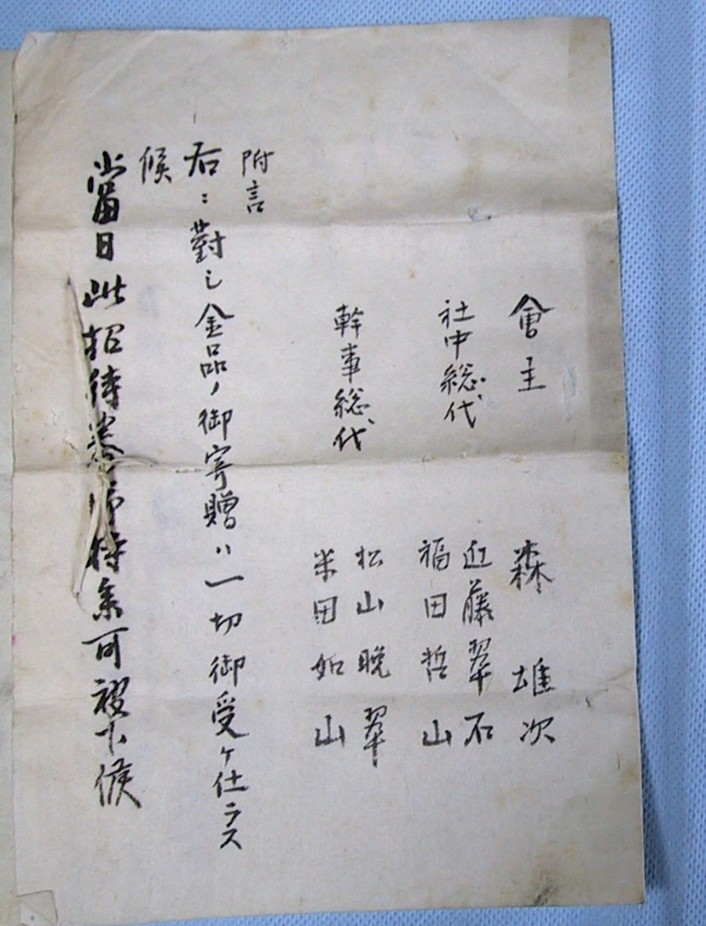 會主 森 雄次
社中総代 近藤翠石
福田哲山
幹事総代 松山晩翠
米田如山
附言
右ニ對シ金品ノ御寄贈ハ一切御受ケ仕ラス
候
當日此招待券御持参可被下候